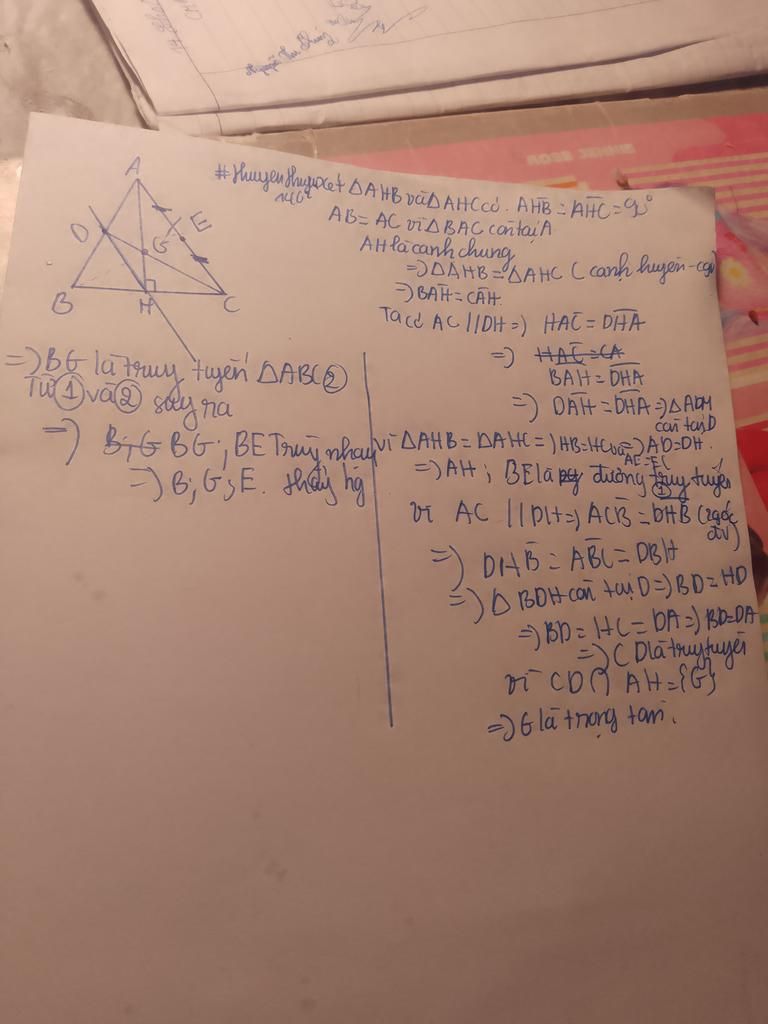 A
D
E
G
B
H
C
#Huyenthuyo xét △AHB và △AHC có. AHB = AHC = 90°
AB = AC vì △BAC cân tại A
AH là cạnh chung
=> △AHB = △AHC ( cạnh huyền - cgv)
=> BAH = CAH.
Ta có AC // DH => HAC = DHA
=> HAC = CA
BAH = DHA
=> DAH = DHA => △ADH
cân tại D
vì △AHB = △AHC => HB = HC và => AD = DH.
AE = EC
=> AH ; BE là đường truy tuyến
①
vì AC // DH => ACB = DHB (2 góc
đv)
=> DHB = ABC = DBH
=> △ BDH cân tại D => BD = HD
=> BD = HC = DA => BD = DA
=> CD là truy tuyến
vì CD ∩ AH = {G}
=> G là trọng tan.
=> BG là truy tuyến △ABC ②
Từ ① và ② suy ra
=> B, G BG ; BE Truỳ nhau
=> B ; G ; E. thẳng hg